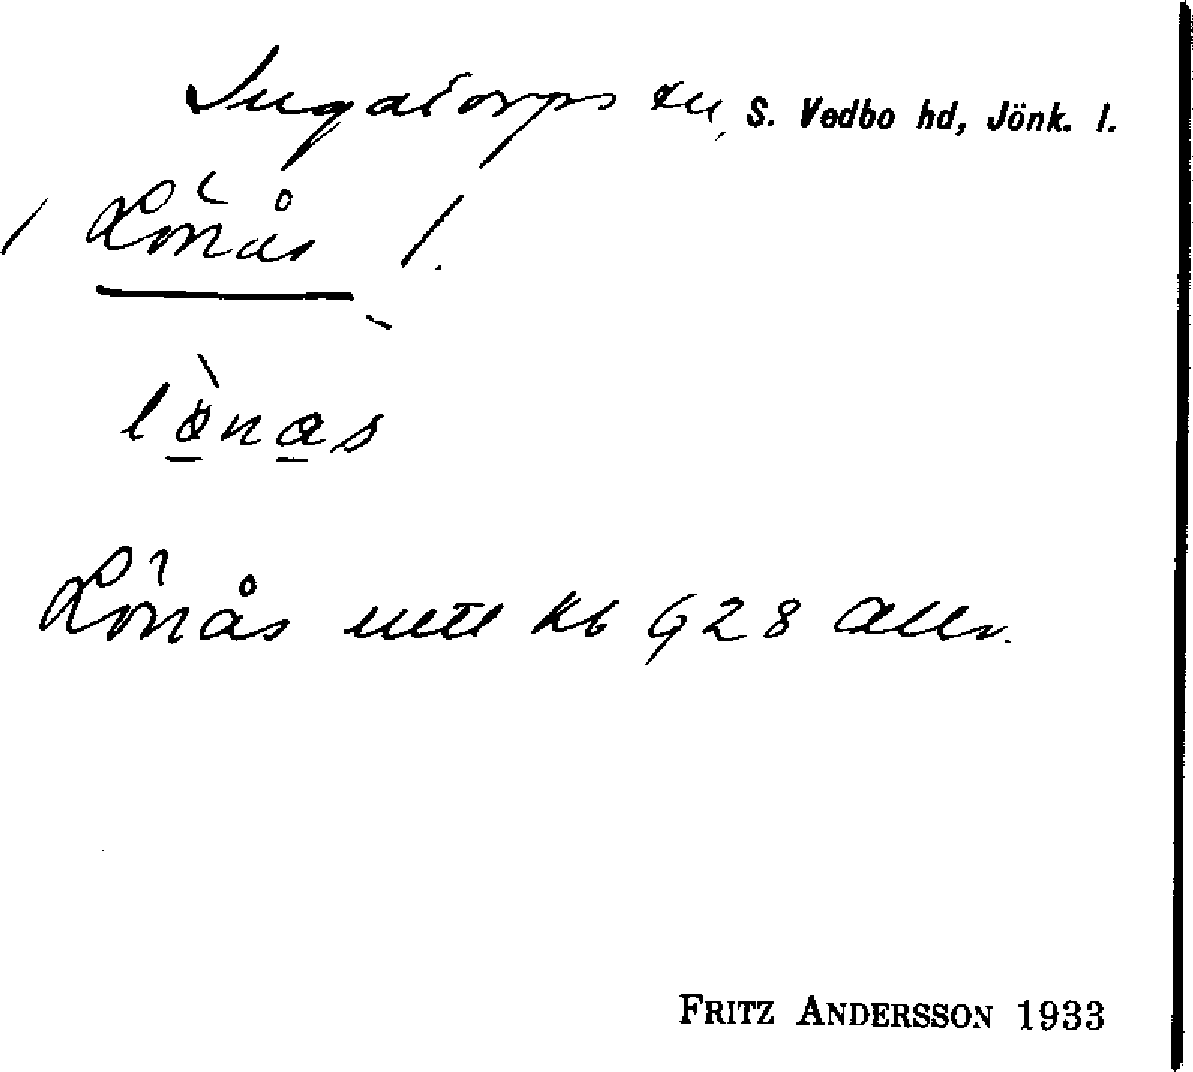 Ingatorps sn, S. Vedbo hd, Jönk. l.
/ Lönås /.
lönas
Lönås utt kb G28 Allm.
FRITZ ANDERSSON 1933